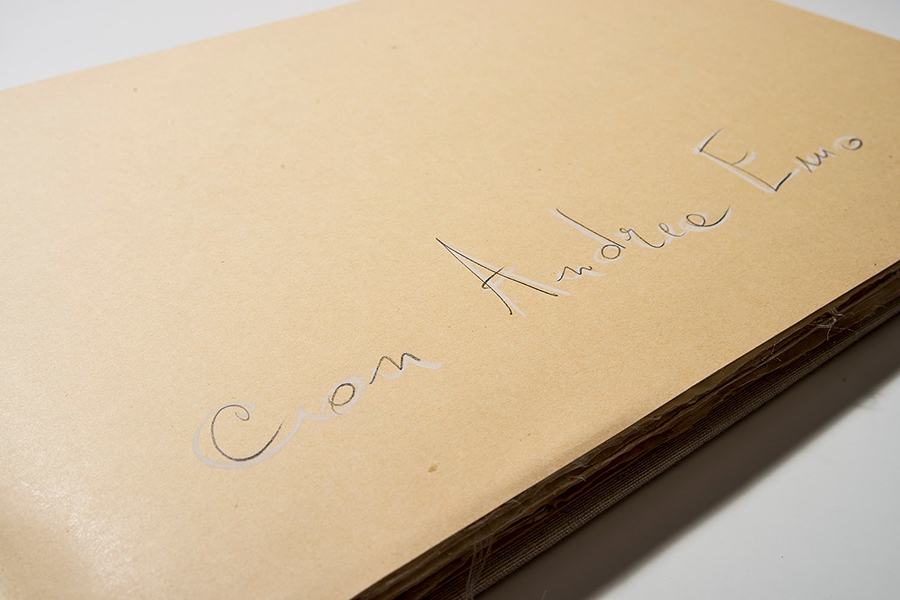 Con Andrea Emo